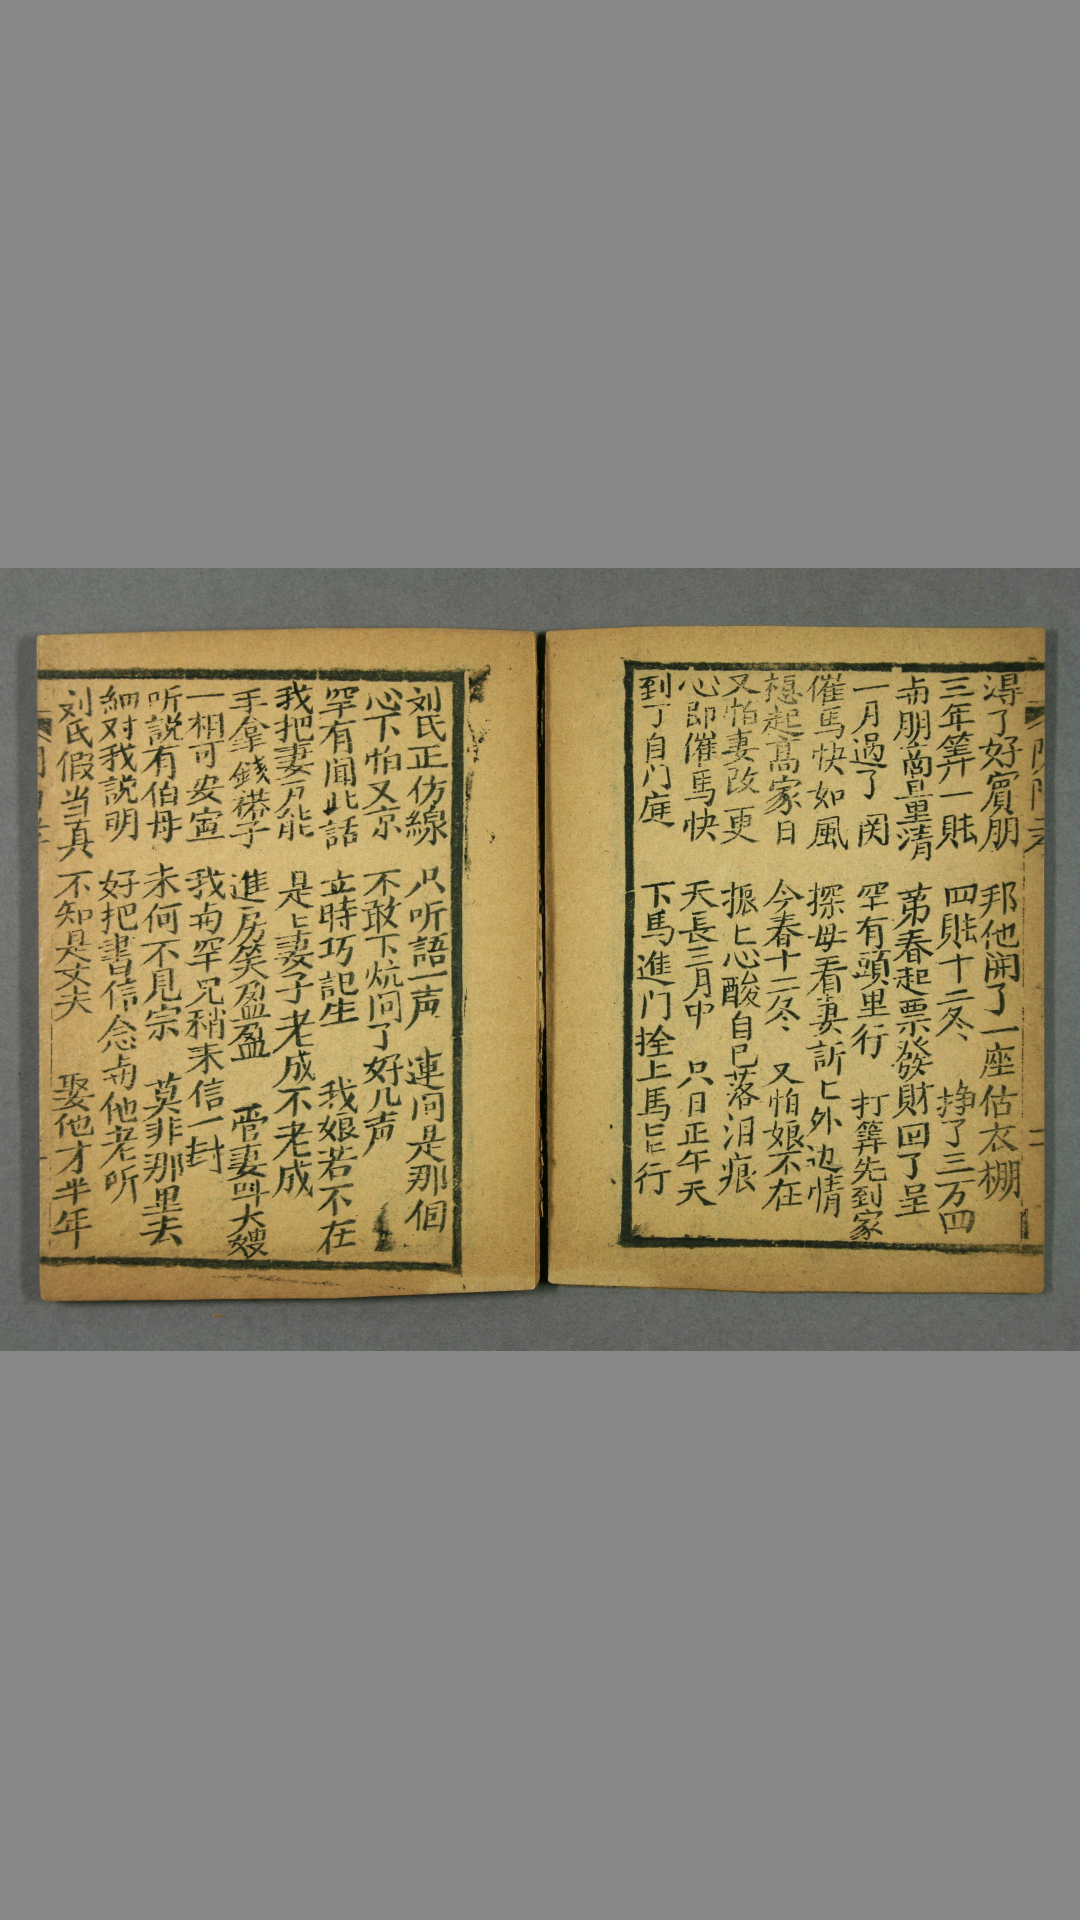 淂了好賓朋 邦他開了一座估衣棚
三年筭一賬 四賬十二冬 掙了三万四
与朋啇量清 第春起票發財回了呈
一月過了関 罕有頭里行 打筭先到家
催馬快如風 探母看妻訢匕外边情
想起髙家日 今春十二冬 又怕娘不在
又怕妻改更 振匕心酸自己落泪痕
心即催馬快 天長三月中 只日正午天
到了自门庭 下馬進门拴上馬匕行
刘氏正仿線 只听語一声 連问是那個
心下怕又京 不敢下炕问了好几声
罕有闻此話 立時巧記生 我娘若不在
我把妻子能 是匕妻子老成不老成
手拿錢褡子 進房笑盈盈 管妻叫大嫂
一相可安寍 我与罕兄稍来信一封
听説有伯母 未何不見宗 莫非那里去
細对我説明 好把書信念与他老听
刘氏假当真 不知是丈夫 娶他才半年